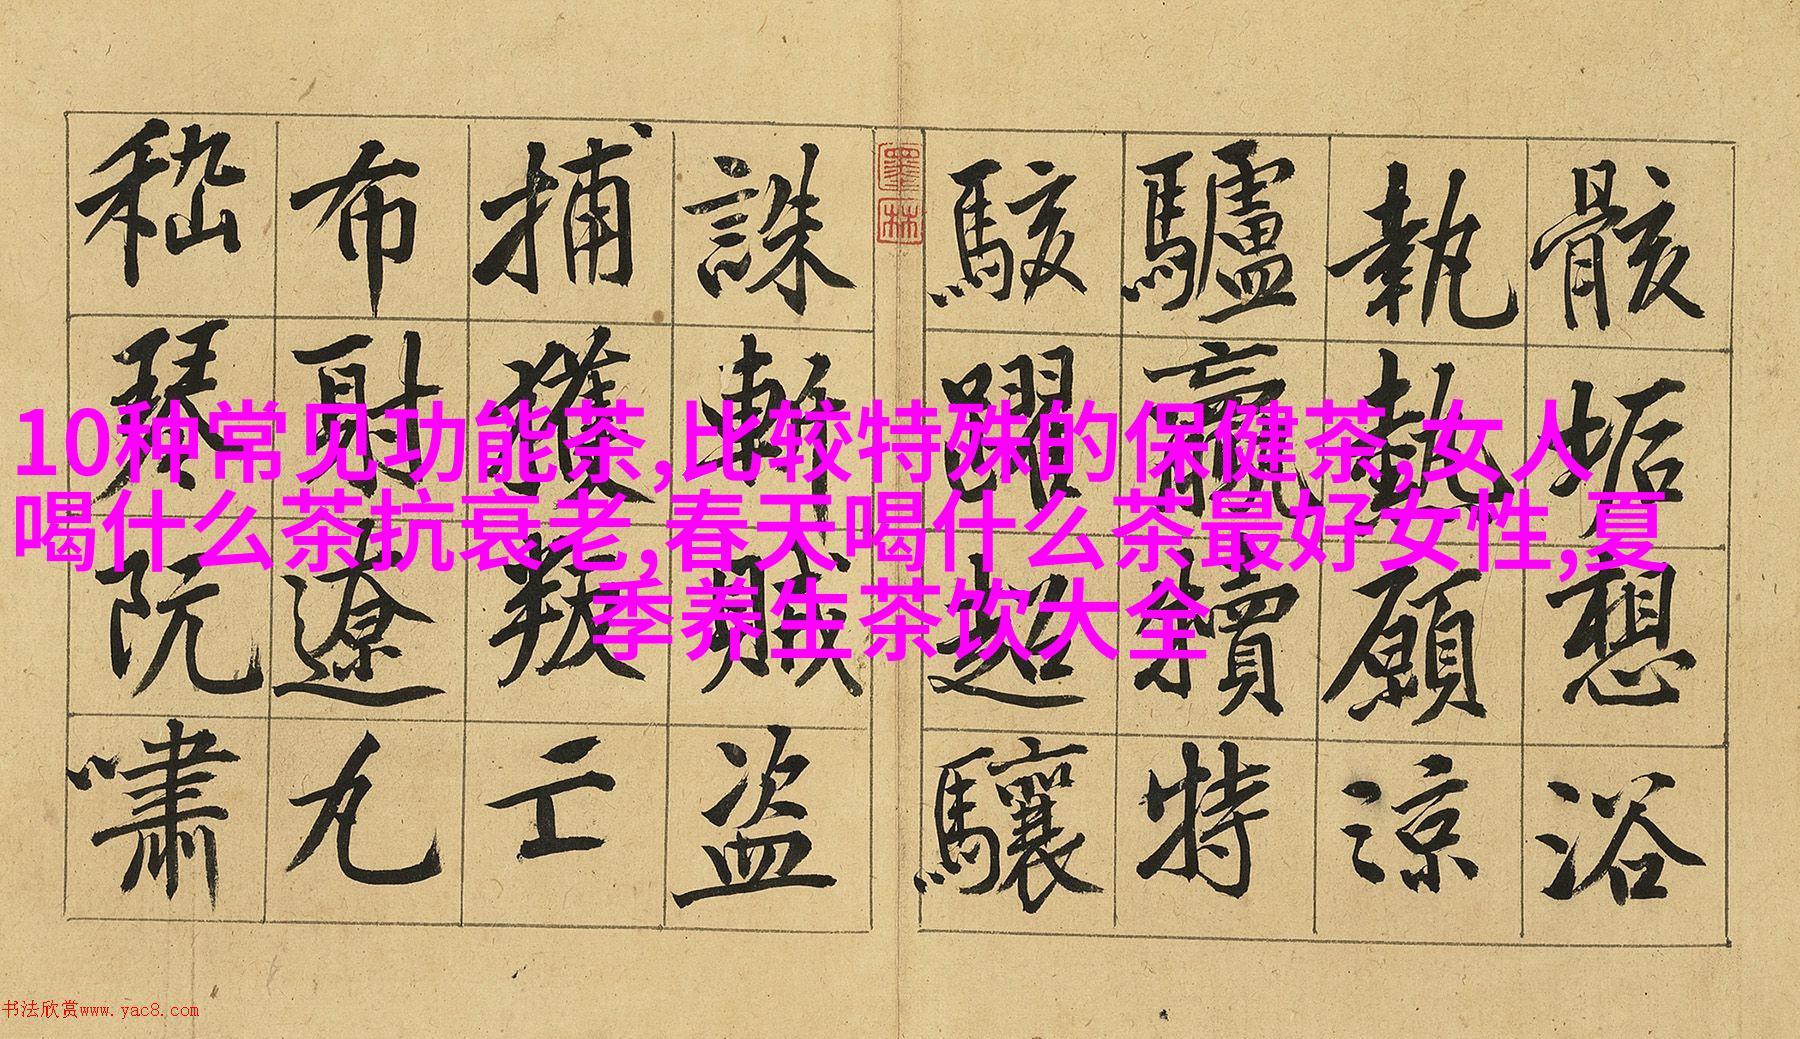 10种常见功能茶,比较特殊的保健茶,女人
喝什么茶抗衰老,春天喝什么茶最好女性,夏
季养生茶饮大全
骸垢想浴
執熱願涼
驢驘犢特
駭躍超驤
墨林
誅斬賊盜
捕獲叛亡
布射遼丸
嵇琴阮嘯
书法欣赏www.yac8.com